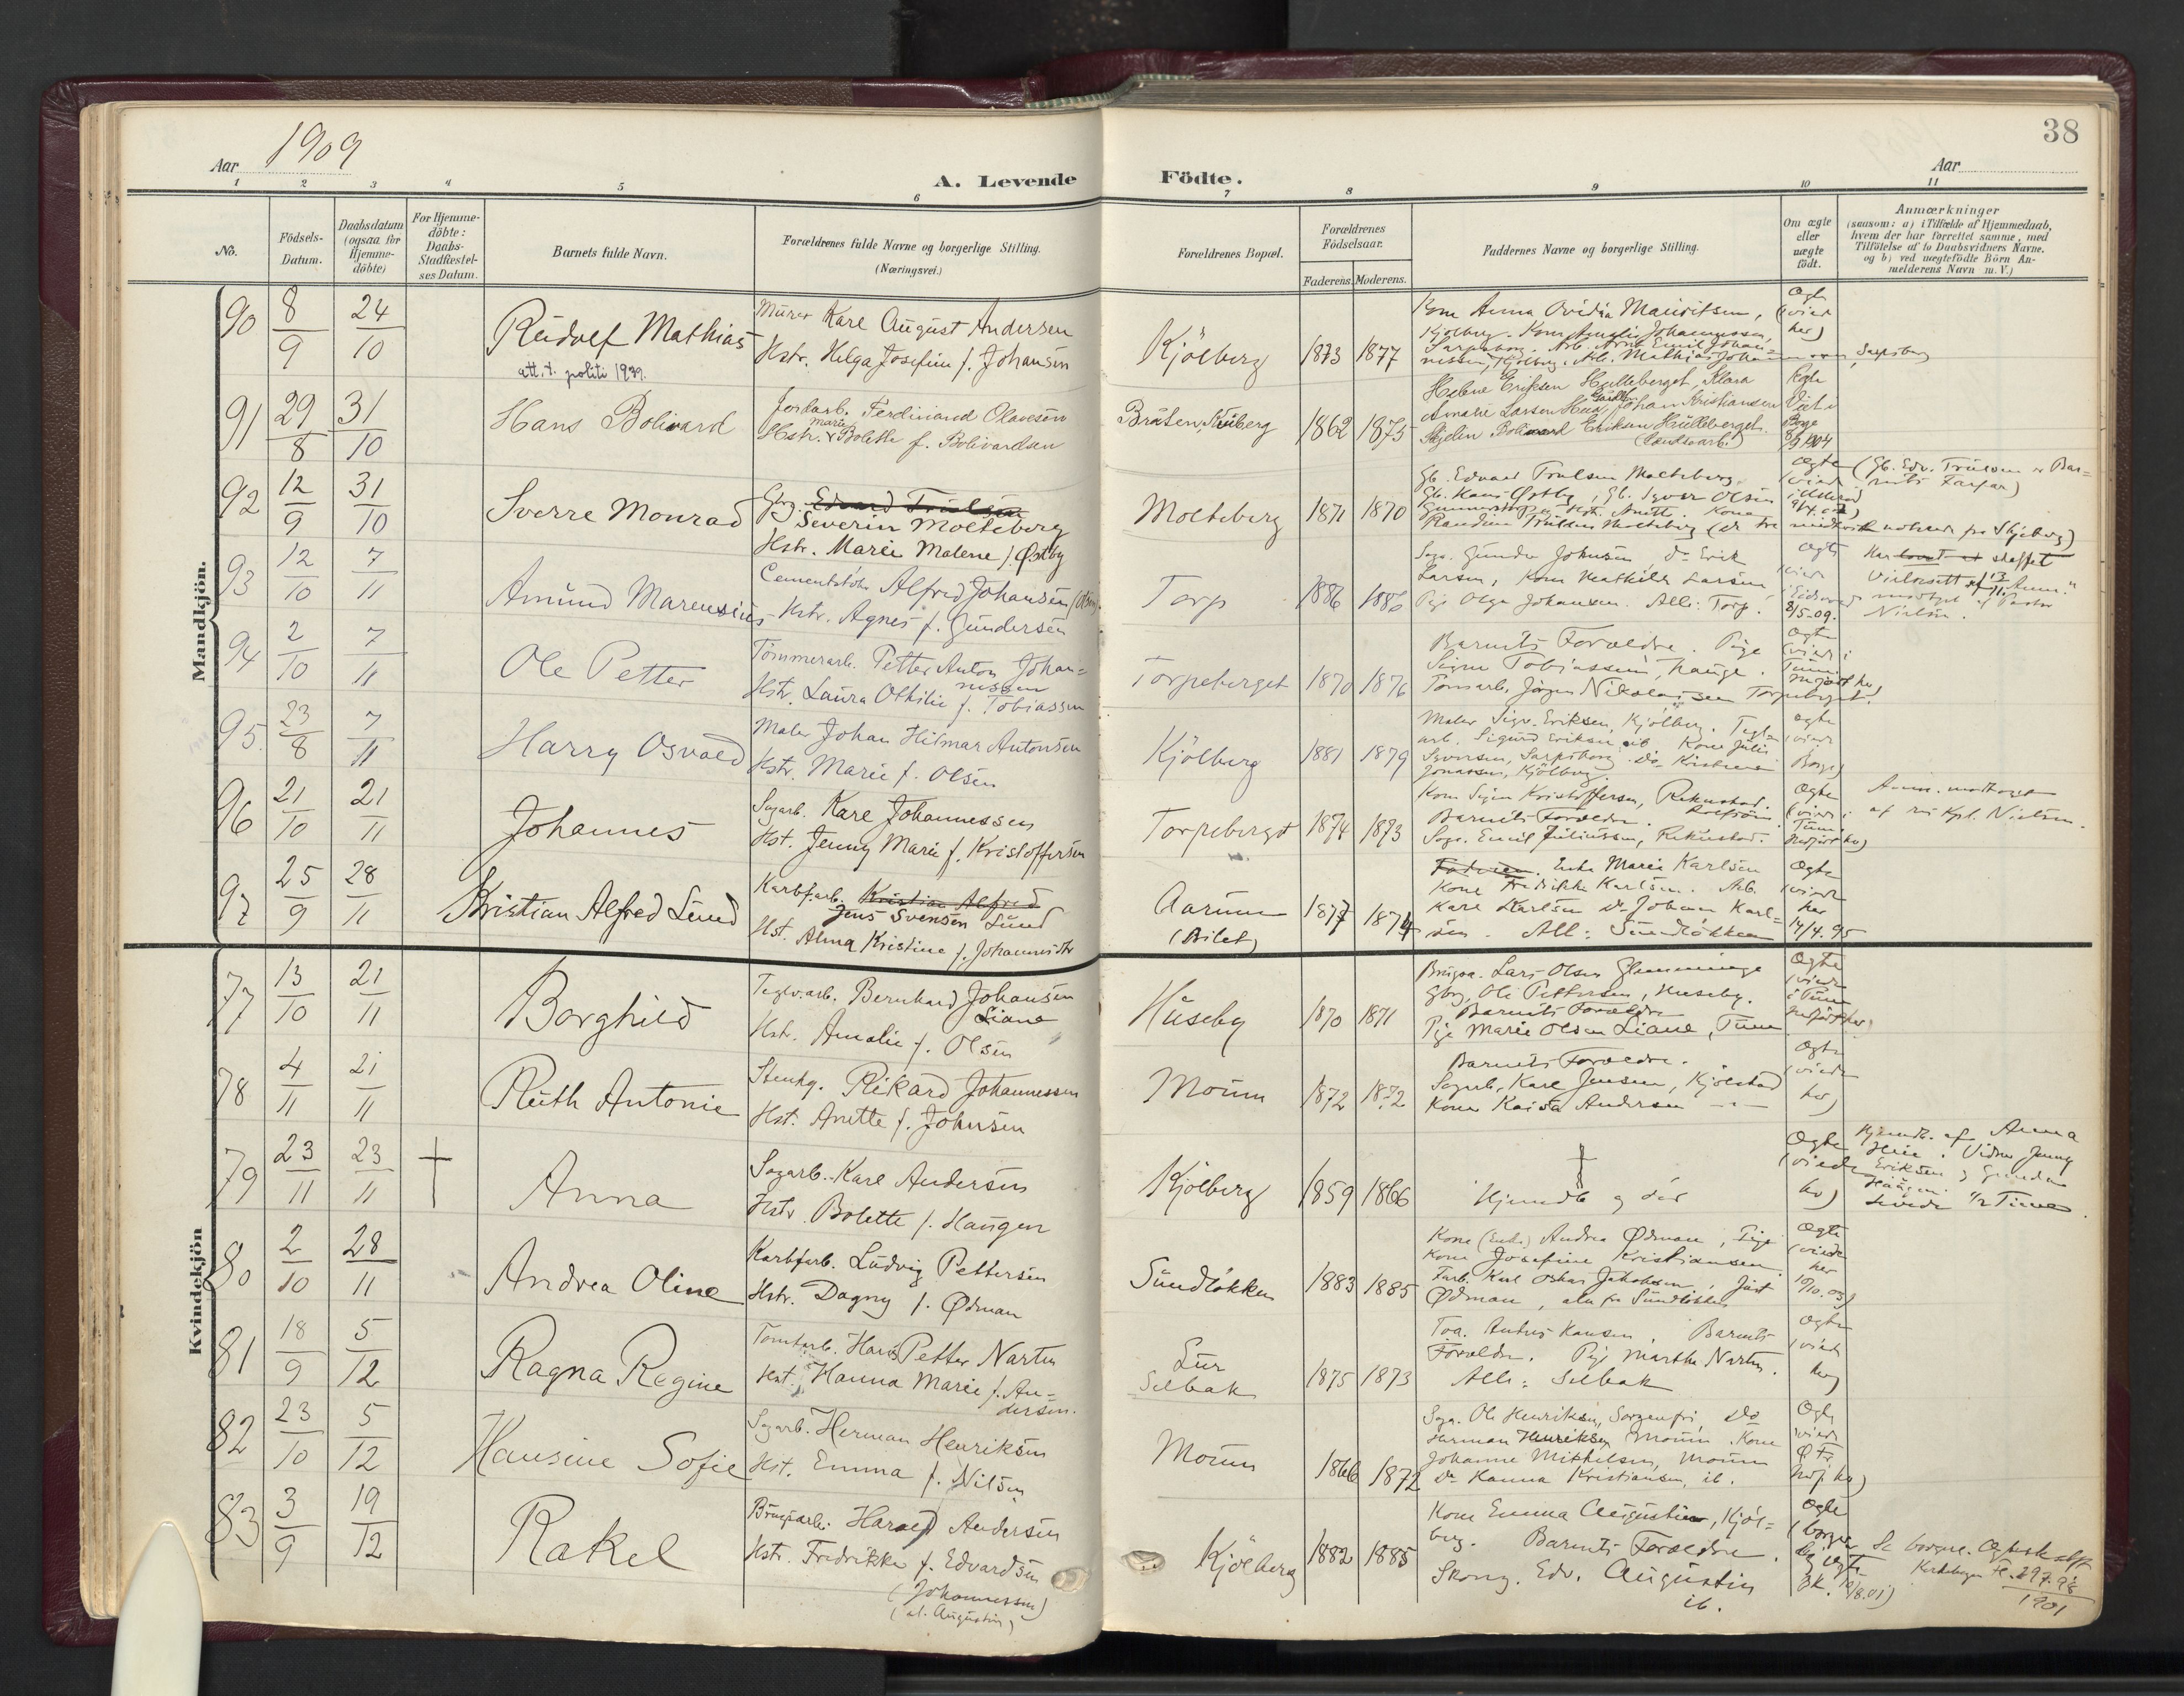 38
Aar 1909
Aar
A. Levende Födte.
1 2 3 4 5 6 7 8 9 10 11
No.
Födsels-
Datum.
Daabsdatum
(ogsaa for
Hjemme-
döbte)
For Hjemme-
döbte:
Daabs-
Stadfæstel-
ses Datum.
Barnets fulde Navn.
Forældrenes fulde Navne og borgerlige Stilling.
(Næringsvei.)
Forældrenes Bopæl.
Forældrenes
Födselsaar.
Faderens. Moderens.
Faddernes Navne og borgerlige Stilling.
Om ægte
eller
uægte
födt.
Anmærkninger
(saasom: a) i Tilfælde af Hjemmedaab,
hvem der har forrettet samme, med
Tilföielse af to Daabsvidners Navne.
og b) ved uægtefödte Börn An-
melderens Navn m. V.)
Mandkjön.
90 8/9 24/10
Rudolf Mathias
att. t. politi 1939.
Murer Karl August Andersen
Hstr. Helga Josefine f. Johansen
Kjölberg 1873 1877
Kone Anna Ovidia Mauritsen,
Kjölberg. Kone Amalie Johannessen,
Sarpsborg. Arb. Arnt Emil Johan-
nessen, Kjölberg. Arb. Mathias Johannessen, Sarpsborg
Ægte
(viede
her)
91 29/8 31/10
Hans Bolivard
Jordarb. Ferdinand Olavesen
Hstr. Marie Bolette f. Bolivardsen
Bråten, Kjölberg 1862 1875
Helene Eriksen Hulleberget, Klara
Amalie Larsen Johan Kristiansen
Bolivard Eriksen Hulleberget.
Ægte
Viet i
Borge
1904
92 12/9 31/10
Sverre Monrad
Gbr. Edvard Trulsen
Severin Molteberg
Hstr. Marie Malene f. Østby
Molteberg 1871 1870
Gb. Edvard Trulsen Molteberg,
Gb. Hans Østby, Gb. Syver Olsen
Kone
Randine Trulsen Molteberg (de tre
Ægte
(viede
(Gb. Edv. Trulsen er Bar-
nets Farfar)
93 12/10 7/11
Amund Marensius
Cementstöb. Alfred Johansen (Olsen)
Hstr. Agnes f. Gundersen
Torp 1886 1886
Sags. Gunder Johnsen do Erik
Larsen, Kone Mathilde Larsen
Pige Olga Johansen. Alle: Torp.
Ægte
(viede
i Eidsvold
8/5-09.
Har lovet at skaffet
Vielsesatt.
modtaget af Pastor
Nielsen.
94 2/10 7/11
Ole Petter
Tömmerarb. Petter Anton Johan-
nessen
Hstr. Laura Othilie f. Tobiassen
Torpeberget 1870 1876
Barnets Forældre. Pige
Signe Tobiassen, Hauge.
Tömarb. Jörgen Nikolaisen Torpeberget.
Ægte
(viede i
Tune
95. 23/8 7/11
Harry Osvald
Maler Johan Hilmar Antonsen
Hstr. Marie f. Olsen
Kjölberg 1881 1879
Maler Sigv. Eriksen, Kjölberg. Tegl-
arb. Sigurd Eriksen, ib. Kone Julie
Syversen, Sarpsborg. Do Kristine
Jonassen, Kjölberg.
Ægte
(viede
Borge)
96 21/10 21/11
Johannes
Sagarb. Karl Johannessen
Hst. Jenny Marie f. Kristoffersen
Torpeberget 1874 1873
Kone Signe Kristoffersen, Rekustad.
Barnets Forældre. Rolfsöen.
Sags. Emil Juliussen, Rekustad.
Ægte
(viede i
Tune
Anm. modtaget
af res. Kpl. Nielsen.
97 25/9 28/11
Kristian Alfred Lund
Karbfarb. Kristian Alfred
Jens Svensen Lund
Hst. Alma Kristine f. Johannesdtr
Aarum
(Bilet) 1877 1874
Enke Marie Karlsen
Kone Fredrikke Karlsen. Arb.
Karl Karlsen do Johan Karl-
sen. Alle: Sundlökken
Ægte
(viede
her
14/4. 95
Kvindekjön
77 13/10 21/11
Borghild
Teglv.arb. Bernhard Johansen
Liane
Hstr. Amalie f. Olsen
Huseby 1870 1871
Brugsa. Lars Olsen Glemminge
Gbr. Ole Pettersen, Huseby.
Barnets Forældre
Pige Marie Olsen Liane, Tune
Ægte
(viede
i Tune
78 4/11 21/11
Ruth Antonie
Stenhg. Rikard Johannessen
Hst. Anette f. Johnsen
Moum 1872 1872
Barnets Forældre.
Sagarb. Karl Jensen, Kjölstad
Kone Kaisa Andersen
Ægte
(viede
her)
79 23/11 23/11 †
Anna
Sagarb. Karl Andersen
Hstr. Bolette f. Haugen
Kjölberg 1859 1866
†
Hjemdb og död
Ægte
(viede
her)
Hjemdb. af Anna
Vidner Jenny
Eriksen og Gunda
Haugen
80 2/10 28/11
Andrea Oline
Karbfarb. Ludvig Pettersen
Hstr. Dagny f. Ødman
Sundlökken 1883 1885
Kone (Enke) Andrea Ødman, Pige
Kone Josefine Kristiansen
Farb. Karl Oskar Jakobsen, Just
Ødman, alle fra Sundlökken
Ægte
(viede
her
10/10. 03)
81 18/9 5/12
Ragna Regine
Tomtarb. Hans Petter Narten
Hst. Hanna Marie f. An-
dersen.
Lur
Selbak 1875 1873
Toa. Anders Hansen, Barnets
Forældre. Pige Marthe Narten.
Alle: Selbak
Ægte
(viede
her)
82 23/10 5/12
Hansine Sofie
Sagarb. Herman Henriksen
Hst. Emma f. Nilsen
Moum 1866 1872
Saga. Ole Henriksen, Sorgenfri, Do
Herman Henriksen Moum. Kone
Johanne Mikkelsen, Moum
Do Hanna Kristiansen, ib.
Ægte
(viede
83 3/9 19/12
Rakel
Brugsarb. Harald Andersen
Hstr. Fredrikke f. Edvardsen
(Johannessen)
(el. Augustin)
Kjölberg 1882 1885
Kone Emma Augustin, Kjöl-
berg. Barnets Forældre.
Skomg. Edv. Augustin
ib.
Ægte
(borger-
lig
Se borgerl. Ægteskab
Kirkebogen
1901